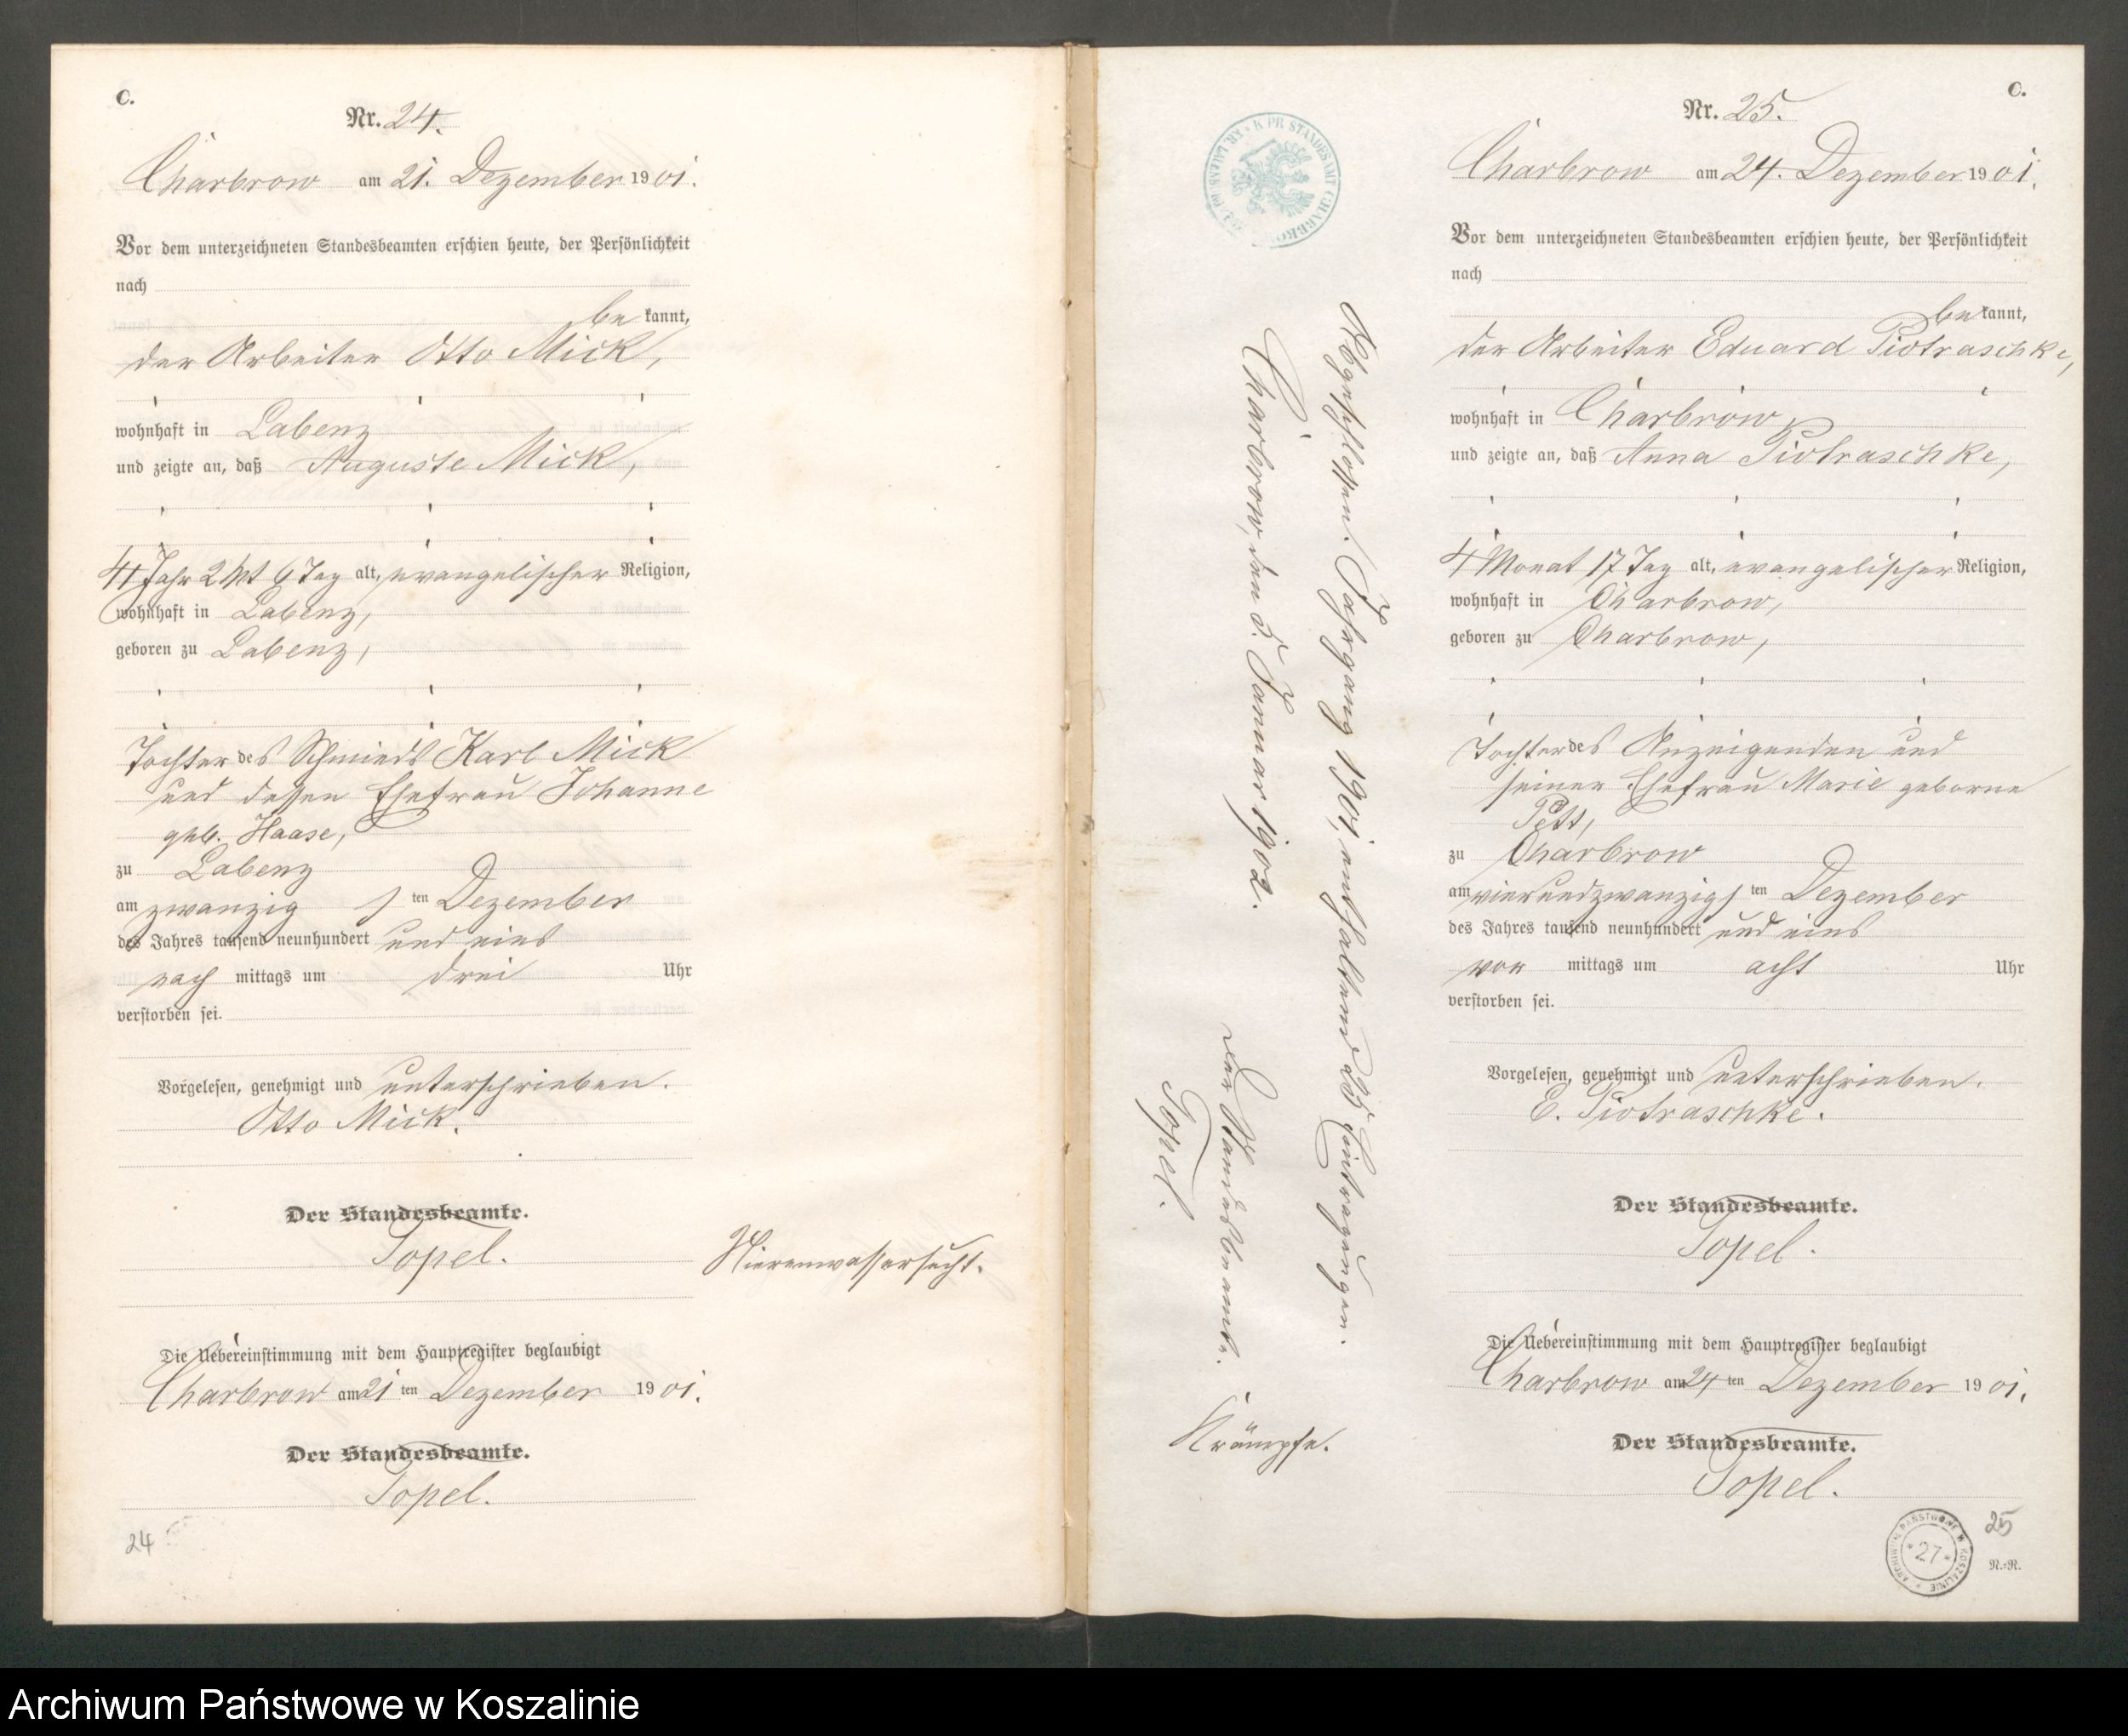 C.
Nr. 24.
Charbrow am 21. Dezember 1901.
Vor dem unterzeichneten Standesbeamten erschien heute, der Persönlichkeit
nach
be kannt,
der Arbeiter Otto Mick,
wohnhaft in Labenz
und zeigte an, daß Auguste Mick,
4 Jahr 2 Mt 6 Tag alt, evangelischer Religion,
wohnhaft in Labenz,
geboren zu Labenz,
Tochter des Schmieds Karl Mick
und dessen Ehefrau Johanne
geb. Haase,
zu Labenz
am zwanzig ten Dezember
des Jahres tausend neunhundert und eins
nach mittags um drei Uhr
verstorben sei.
Vorgelesen, genehmigt und unterschrieben.
Otto Mick.
Der Standesbeamte.
Topel.
Nierenwassersucht.
Die Uebereinstimmung mit dem Hauptregister beglaubigt
Charbrow am 21 ten Dezember 1901.
Der Standesbeamte.
Topel.
24
K. PR. STANDESAMT CHARBROW
Abgeschlossen! Jahrgang 1901, enthaltend 25 Eintragungen.
Charbrow, den 3. Januar 1902.
Der Standesbeamte.
Topel.
Krämpfe.
C.
Nr. 25.
Charbrow am 24. Dezember 1901.
Vor dem unterzeichneten Standesbeamten erschien heute, der Persönlichkeit
nach
be kannt,
der Arbeiter Eduard Piotraschke,
wohnhaft in Charbrow,
und zeigte an, daß Anna Piotraschke,
4 Monat 17 Tag alt, evangelischer Religion,
wohnhaft in Charbrow,
geboren zu Charbrow,
Tochter des Anzeigenden und
seiner Ehefrau Marie geborne
zu Charbrow
am vierundzwanzig ten Dezember
des Jahres tausend neunhundert und eins
vor mittags um acht Uhr
verstorben sei.
Vorgelesen, genehmigt und unterschrieben.
E. Piotraschke.
Der Standesbeamte.
Topel.
Die Uebereinstimmung mit dem Hauptregister beglaubigt
Charbrow am 24 ten Dezember 1901.
Der Standesbeamte.
Topel.
ARCHIWUM PAŃSTWOWE W KOSZALINIE
* 27 *
25
N.=R.
Archiwum Państwowe w Koszalinie